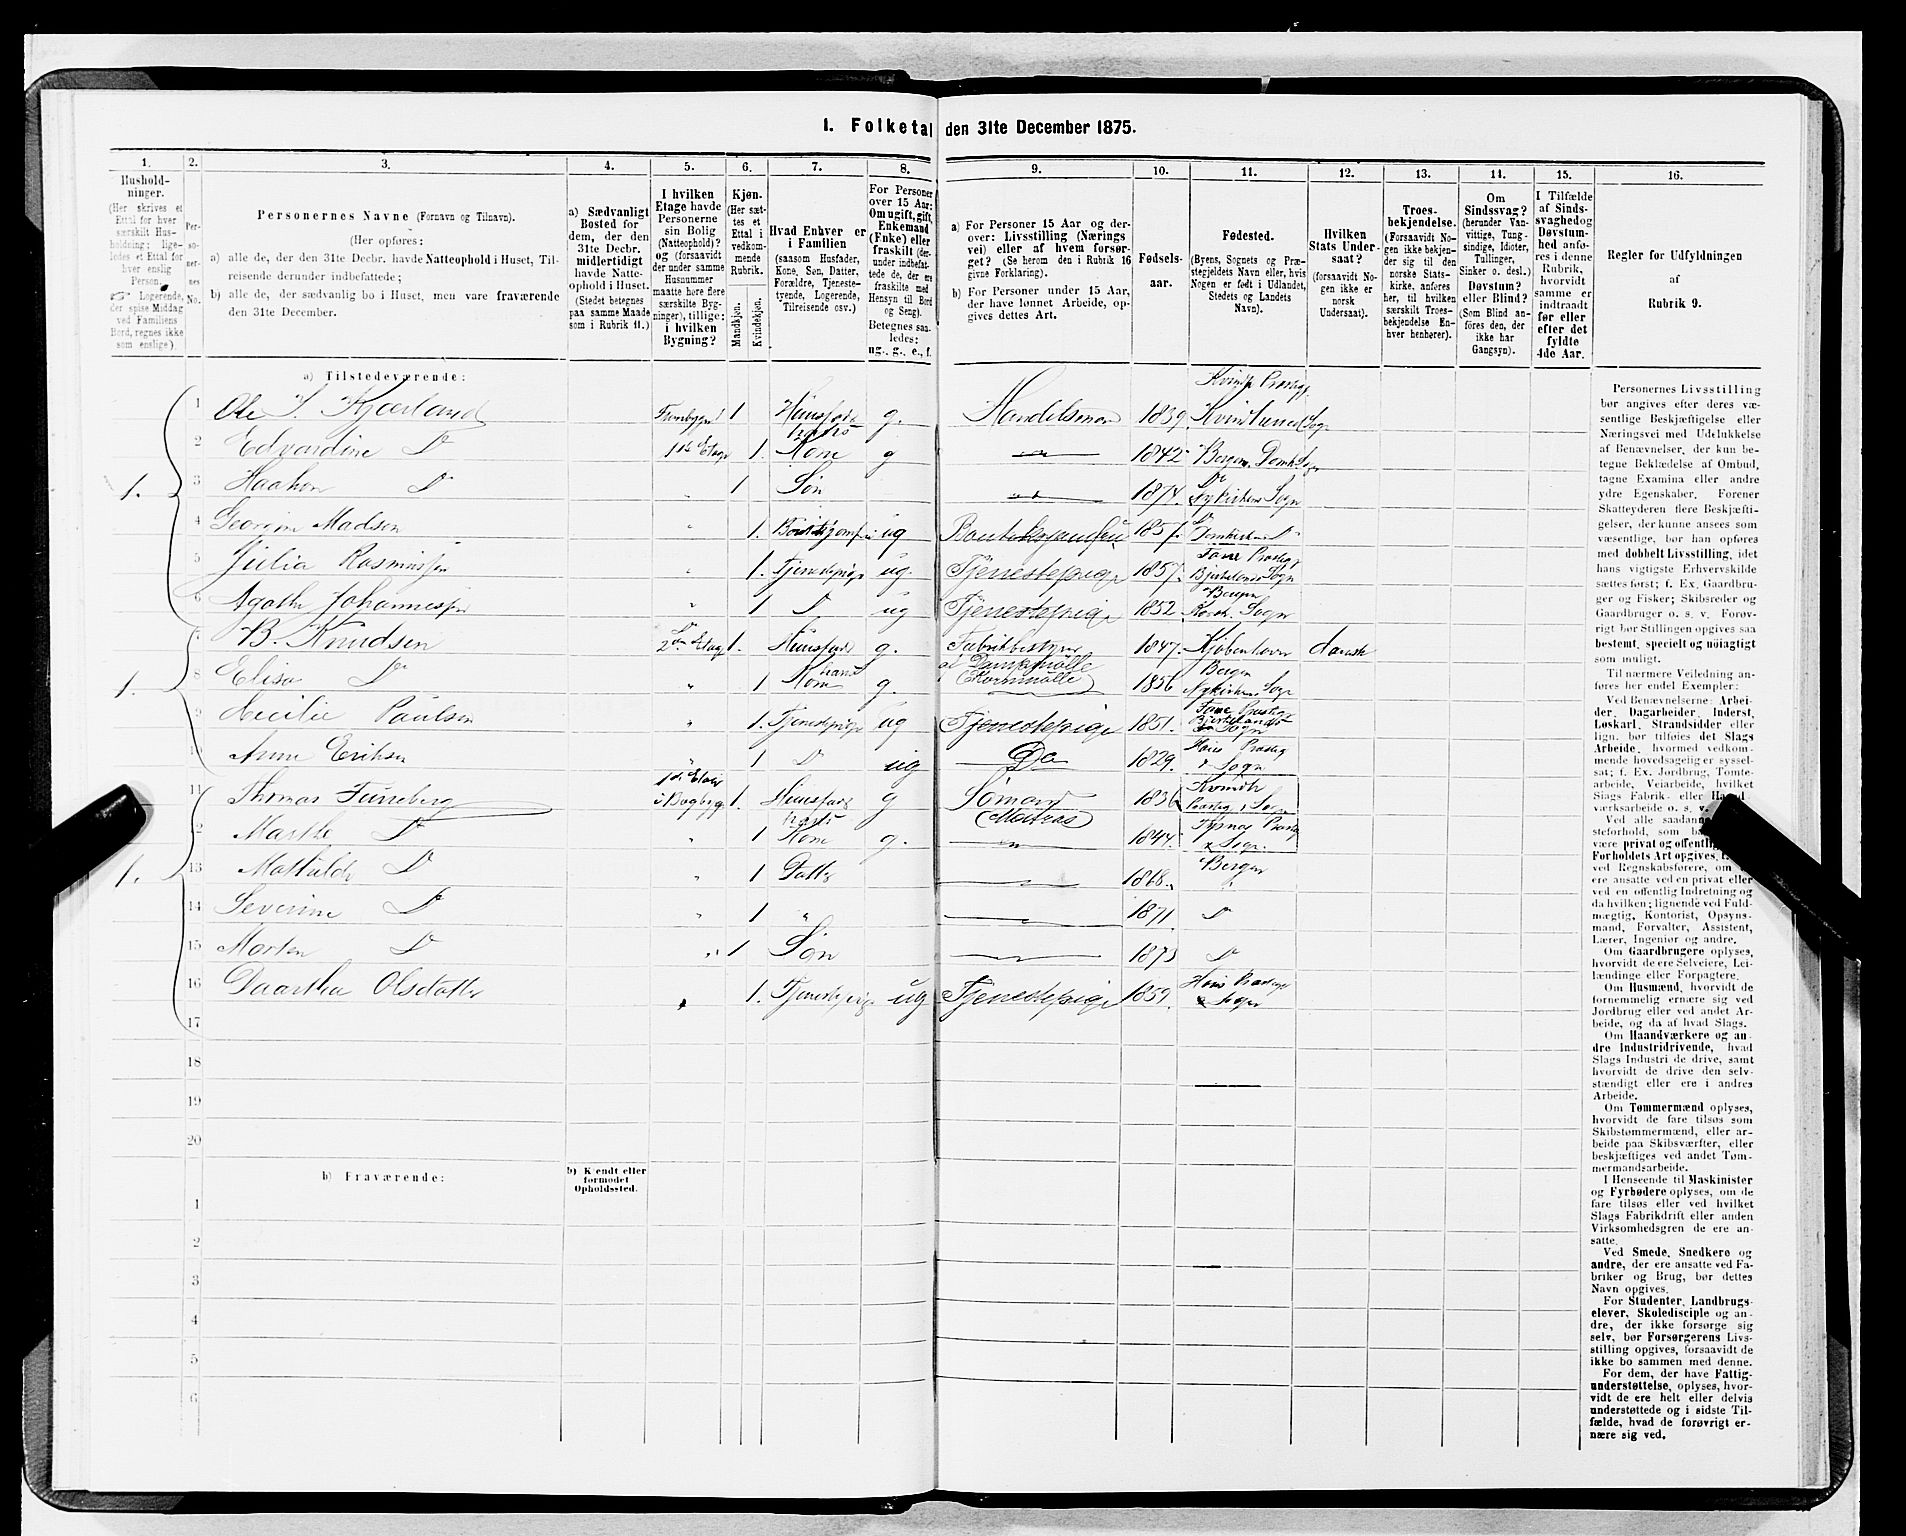 I. Folketal den 31te December 1875.
1.
Hushold-
ninger.
(Her skrives et
Ettal for hver
særskilt Hus-
holdning; lige-
ledes et Ettal for
hver enslig
Person.
☞ Logerende,
der spise Middag
ved Familiens
Bord, regnes ikke
som enslige).
2.
Per-
so-
ner-
nes
No.
3.
Personernes Navne (Fornavn og Tilnavn).
(Her opføres:
a) alle de, der den 31te Decbr. havde Natteophold i Huset, Til-
reisende derunder indbefattede;
b) alle de, der sædvanlig bo i Huset, men vare fraværende
den 31te December.
4.
a) Sædvanligt
Bosted for
dem, der den
31te Decbr.
midlertidigt
havde Natte-
ophold i Huset.
(Stedet betegnes
paa samme Maade
som i Rubrik 11.)
5.
I hvilken
Etage havde
Personerne
sin Bolig
(Natteophold)?
og (forsaavidt
der under samme
Husnummer
maatte høre flere
særskilte Byg-
ninger), tillige:
i hvilken
Bygning?
6.
Kjøn.
(Her sæt-
tes et
Ettal i
vedkom-
mende
Rubrik.
Mandkjøn.
Kvindekjøn.
7.
Hvad Enhver er
i Familien
(saasom Husfader,
Kone, Søn, Datter,
Forældre, Tjeneste-
tyende, Logerende,
Tilreisende osv.)
8.
For Personer
over 15 Aar:
Om ugift, gift,
Enkemand
(Enke) eller
fraskilt (der-
under indbefat-
tede de, der ere
fraskilte med
Hensyn til Bord
og Seng).
Betegnes saa-
ledes:
ug., g., e., f.
9.
a) For Personer 15 Aar og der-
over: Livsstilling (Nærings
vei) eller af hvem forsør-
get? (Se herom den i Rubrik 16
givne Forklaring).
b) For Personer under 15 Aar,
der have lønnet Arbeide, op-
gives dettes Art.
10.
Fødsels-
aar.
11.
Fødested.
(Byens, Sognets og Præ-
stegjeldets Navn eller, hvis
Nogen er født i Udlandet,
Stedets og Landets
Navn).
12.
Hvilken
Stats Under-
saat?
(forsaavidt No-
gen ikke er
norsk
Undersaat).
13.
Troes-
bekjendelse.
(Forsaavidt No-
gen ikke bekjen-
der sig til den
norske Stats-
kirke, anføres
her, til hvilken
særskilt Troes-
bekjendelse En-
hver henhører).
14.
Om
Sindssvag?
(herunder Van-
vittige, Tung-
sindige, Idioter,
Tullinger,
Sinker o. desl.)
Døvstum?
eller Blind?
(Som Blind an-
føres den, der
ikke har
Gangsyn).
15.
I Tilfælde
af Sinds-
svaghed og
Døvstum-
hed anfø-
res i denne
Rubrik,
hvorvidt
samme er
indtraadt
før eller
efter det
fyldte
4de Aar.
16.
Regler for Udfyldningen
af
Rubrik 9.
a) Tilstedeværende:
1 Ole Kjærland 1 g. Handelsmand 1839 Sogn
1. 2 Edvardine Do 1ste Etage 1. hans Kone g 1842 Bergen Domk Sogn
3 Haakon Do 1 Søn 1874. Do Nykirkens Sogn
4 Georgine Madsen 1. ug 1857. Do Domkirkens Do
5 Julia Rasmussen 1. Tjenestepige ug. Tjenestepige 1857. Fane Præsteg Sogn
6 Agathe Johannesen 1 Do ug Tjenestepige 1852 Bergen Korsk. Sogn
7 B. Knudsen 2den Etage 1. Huusfader g. Fabrikbestyrer 1847. Kjøbenhavn dansk
1. 8 Elisa Do 1 hans Kone g. Dampmølle Kornmølle 1856 Bergen Nykirkens Sogn
9 Cecilie Paulsen 1. Tjenestepige ug Tjenestepige 1851. Fane Præsteg Sogn
10 Anne Eriksen 1 Do ug Do 1829. Præsteg Sogn
11 Thomas Funeberg 1ste Etage i Bagbyg. 1. Huusfader g Sømand (Matros) 1836 Præsteg Sogn
2 Marthe Do 1 hans Kone g. 1844. Tysnæs Præsteg Sogn.
1. 13 Mathilde Do 1 Datter 1868. Bergen
14 Severine Do 1 1871 Do
15 Morten Do 1 Søn 1873 Do
16 Daarthea Olsdatter 1. Tjenestepige ug Tjenestepige 1859. Præsteg Sogn
17
18
19
20
b) Fraværende:
b) Kjendt eller
formodet
Opholdssted.
1
2
3
4
5
6
Personernes Livsstilling
bør angives efter deres væ-
sentlige Beskjæftigelse eller
Næringsvei med Udelukkelse
af Benævnelser, der kun be-
tegne Beklædelse af Ombud,
tagne Examina eller andre
ydre Egenskaber. Forener
Skatteyderen flere Beskjæfti-
gelser, der kunne ansees som
væsentlige, bør han opgives
med dobbelt Livsstilling, idet
hans vigtigste Erhvervskilde
sættes først; f. Ex. Gaardbru-
ger og Fisker; Skibsreder og
Gaardbruger o. s. v. Forøv-
rigt bør Stillingen opgives saa
bestemt, specielt og nøiagtigt
som muligt.
Til nærmere Veiledning an-
føres her endel Exempler:
Ved Benævnelserne: Arbei-
der, Dagarbeider, Inderst,
Løskarl, Strandsidder eller
lign. bør tilføies det Slags
Arbeide, hvormed vedkom-
mende hovedsagelig er syssel-
sat; f. Ex. Jordbrug, Tømte-
arbeide, Veiarbeide, hvilket
Slags Fabrik- eller
værksarbeide o. s. v.
Ved alle
steforhold, som
være privat og offentlig
Forholdets Art opgives,
ved Regnskabsførere, om
ere ansatte ved en privat eller
ved en offentlig Indretning og
da hvilken; lignende ved Fuld-
mægtig, Kontorist, Opsyns-
mand, Forvalter, Assistent,
Lærer, Ingeniør og andre.
Om Gaardbrugere oplyses,
hvorvidt de ere Selveiere, Lei-
lændinge eller Forpagtere.
Om Husmænd, hvorvidt de
fornemmelig ernære sig ved
Jordbrug eller ved andet Ar-
beide, og da af hvad Slags.
Om Haandværkere og an-
dre Industridrivende, hvad
Slags Industri de drive, samt
hvorvidt de drive den selv-
stændigt eller ere i andres
Arbeide.
Om Tømmermænd oplyses,
hvorvidt de fare tilsøs som
Skibstømmermænd, eller ar-
beide paa Skibsværfter, eller
beskjæftiges ved andet Tøm-
mermandsarbeide.
I Henseende til Maskinister
og Fyrbødere oplyses, om de
fare tilsøs eller ved hvilket
Slags Fabrikdrift eller anden
Virksomhedsgren de ere an-
satte.
Ved Smede, Snedkere og
andre, der ere ansatte ved Fa-
briker og Brug, bør dettes
Navn opgives.
For Studenter, Landbrugs-
elever, Skoledisciple og an-
dre, der ikke forsørge sig
selv, bør Forsørgerens Livs-
stilling opgives, forsaavidt de
ikke bo sammen med denne.
For dem, der have Fattig-
understøttelse, oplyses, hvor-
vidt de ere helt eller delvis
understøttede og i sidste Til-
fælde, hvad de forøvrigt er-
nære sig ved.